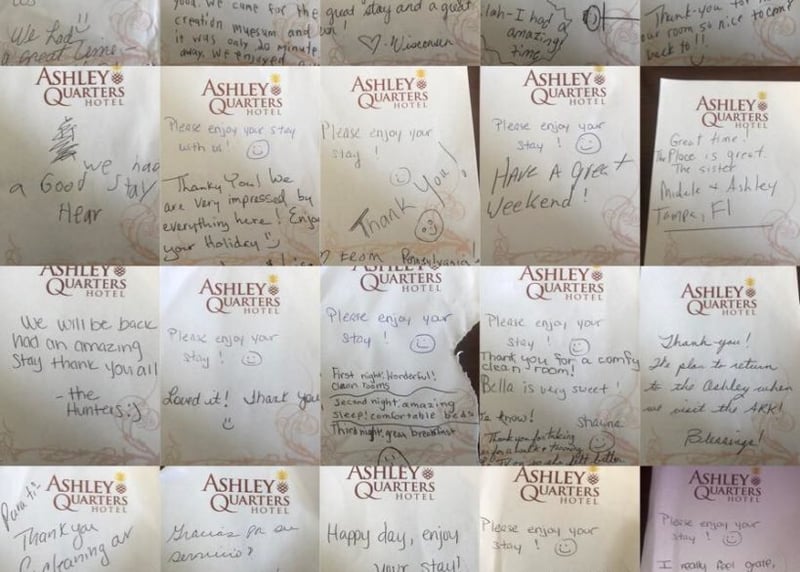 We had
a great time -
you. We came for the
creation museum and
it was only 20 minute
away. We enjoyed
great stay and a great
♡ - Wisconsin
lah - I had a
amazing
time
Thank-you for
our room so nice to come
back to!!
ASHLEY
QUARTERS
HOTEL
we had
a Good Stay
Hear
ASHLEY
QUARTERS
HOTEL
Please enjoy your stay
with us! ☺
Thank You! We
are very impressed by
everything here! Enjoy
your Holiday
ASHLEY
QUARTERS
HOTEL
Please enjoy your
stay! ☺
Thank You!
♡ From Pennsylvania!
ASHLEY
QUARTERS
HOTEL
Please enjoy your
stay! ☺
HAVE A GREAT
WEEKEND!
ASHLEY
QUARTERS
HOTEL
Great time!
The Place is great.
The sister
& Ashley
Tampa, Fl
ASHLEY
QUARTERS
HOTEL
We will be back
had an amazing
stay thank you all
- the
Hunters :)
ASHLEY
QUARTERS
HOTEL
Please enjoy your
stay! ☺
Loved it! Thank you
ASHLEY
QUARTERS
HOTEL
Please enjoy your
stay! ☺
First night: Wonderful!
Clean rooms
Second night: amazing
sleep! comfortable beds
Third night: great breakfast
ASHLEY
QUARTERS
HOTEL
Please enjoy your
stay! ☺
Thank you for a comfy
clean room!
Bella is very sweet!
know!
Shauna
Thank you for taking
ASHLEY
QUARTERS
HOTEL
Thank you!
We plan to return
to the Ashley when
we visit the ARK!
Blessings!
ASHLEY
QUARTERS
HOTEL
Para ti:
Thank you
cleaning our
ASHLEY
QUARTERS
HOTEL
Gracias por su
servicio
ASHLEY
QUARTERS
HOTEL
Happy day, enjoy
your stay!
ASHLEY
QUARTERS
HOTEL
Please enjoy your
stay! ☺
ASHLEY
QUARTERS
HOTEL
Please enjoy your
stay! ☺
I really